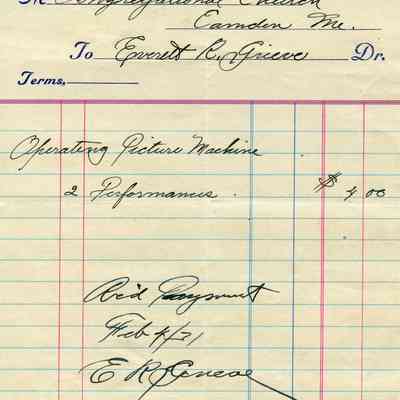 M Congregational Church
Camden Me.
To Everett R. Grieve Dr.
Terms,
Operating Picture Machine
2 Performances . $ 4 00
Rec'd Payment
Feb 4/21
E R Grieve